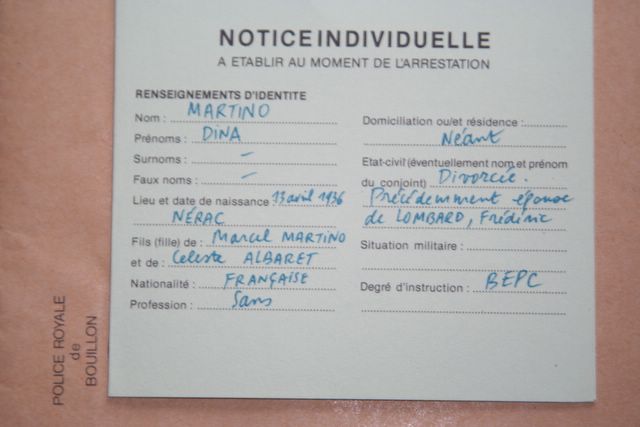 NOTICE INDIVIDUELLE
A ETABLIR AU MOMENT DE L'ARRESTATION
RENSEIGNEMENTS D'IDENTITE
Nom : MARTINO
Prénoms : DINA
Surnoms : –
Faux noms : –
Lieu et date de naissance 13 avril 1936
NÉRAC
Fils (fille) de : Marcel MARTINO
et de : Celeste ALBARET
Nationalité : FRANÇAISE
Profession : Sans
Domiciliation ou/et résidence :
Néant
Etat-civil (éventuellement nom et prénom
du conjoint) Divorcée.
Précédemment épouse
de LOMBARD, Frédéric
Situation militaire :
Degré d'instruction : BEPC
POLICE ROYALE
de
BOUILLON